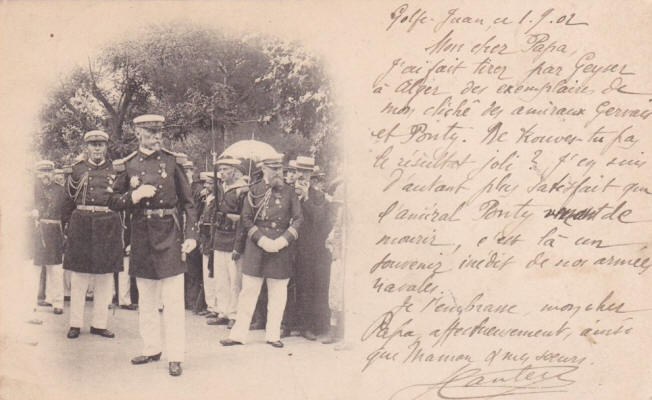 Golfe-Juan, ce 1.9.02
Mon cher Papa,
J'ai fait tirer par Geyser
à Alger des exemplaires de
mon cliché des amiraux Gervais
et Ponty. Ne trouves-tu pas
le résultat joli? J'en suis
d'autant plus satisfait que
l'amiral Ponty vient de
mourir, c'est là un
souvenir inédit de nos armées
navales.
Je t'embrasse, mon cher
Papa, affectueusement, ainsi
que Maman & mes sœurs.